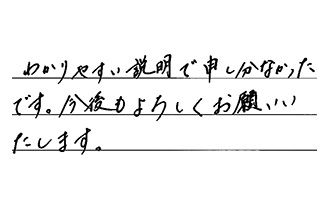 わかりやすい説明で申し分なかった
です。今後もよろしくお願いい
たします。